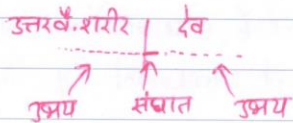 उत्तरवै. शरीर | देव
उभय संघात उभय